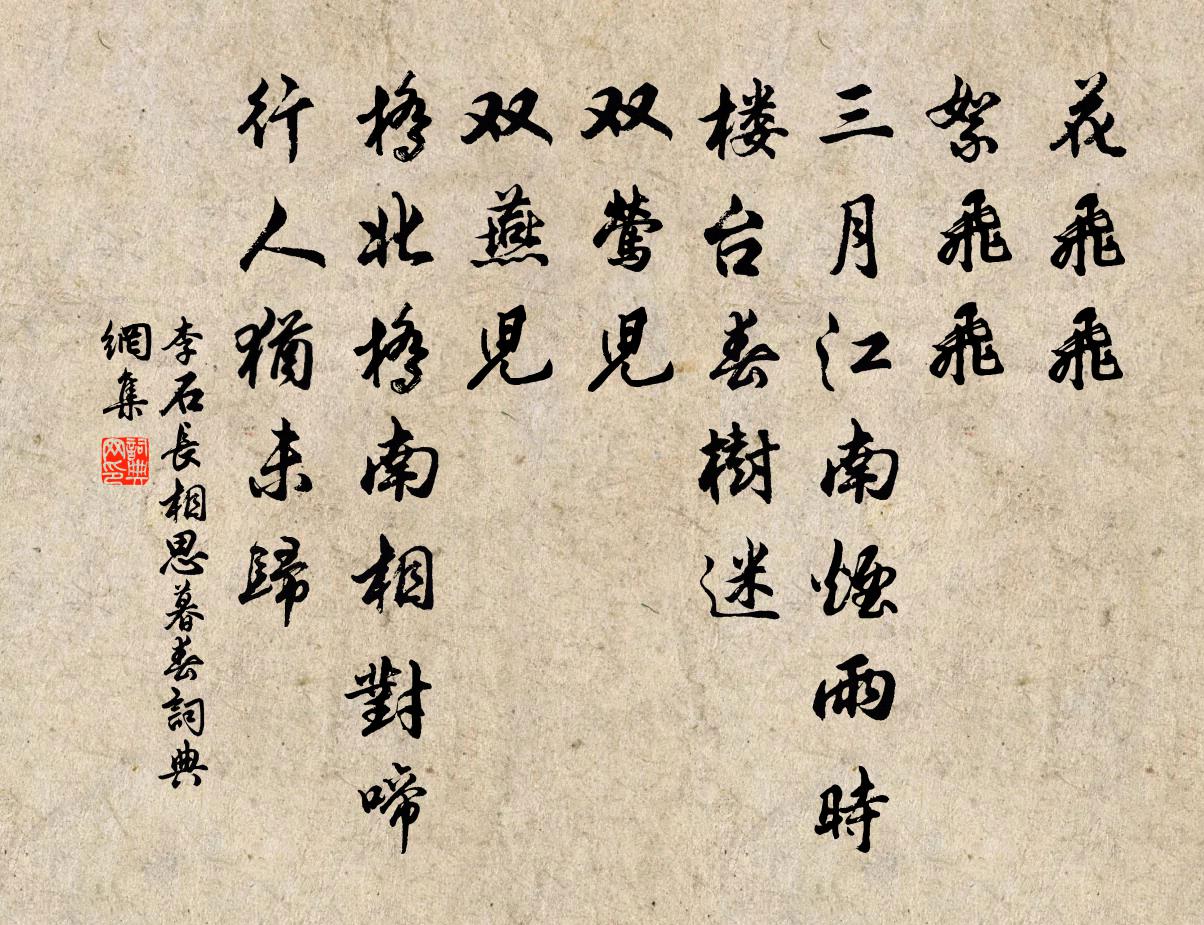 花飛飛
絮飛飛
三月江南煙雨時
楼台春樹迷
双鶯児
双燕児
橋北橋南相對啼
行人猶未歸
李石長相思暮春詞典
網集
詞典网印